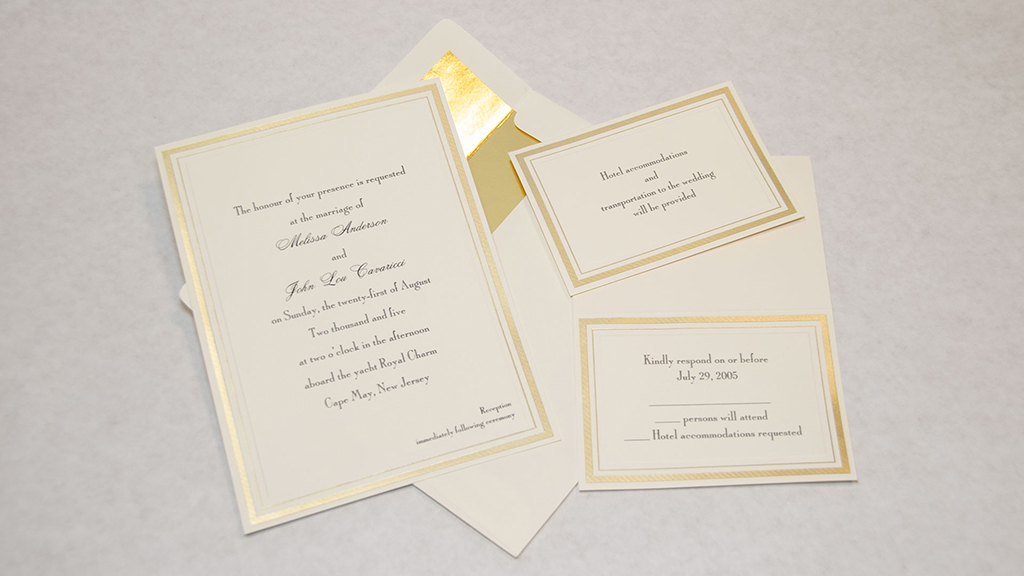 The honour of your presence is requested
at the marriage of
Melissa Anderson
and
John Lou Cavaricci
on Sunday, the twenty-first of August
Two thousand and five
at two o'clock in the afternoon
aboard the yacht Royal Charm
Cape May, New Jersey
Reception
immediately following ceremony
Hotel accommodations
and
transportation to the wedding
will be provided
Kindly respond on or before
July 29, 2005
____ persons will attend
____ Hotel accommodations requested